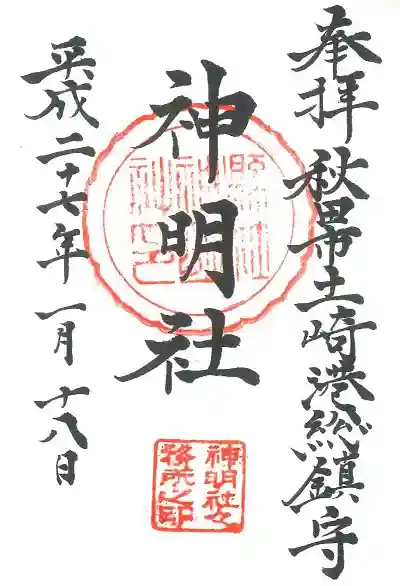 奉拝
秋田土崎港総鎮守
神明社
平成二十七年一月十八日
神明社々
務所之印